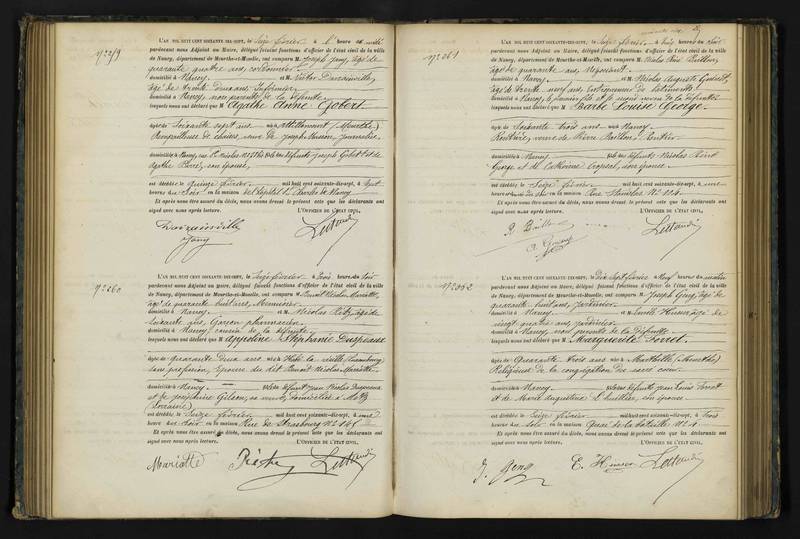 N° 259
L'AN MIL HUIT CENT SOIXANTE-DIX-SEPT, le seize février à heure du
pardevant nous Adjoint au Maire, délégué faisant fonctions d'officier de l'état civil de la ville
de Nancy, département de Meurthe-et-Moselle, ont comparu M. Joseph Jany, âgé de
quarante quatre ans, cordonnier
domicilié à Nancy et M. Victor
âgé de trente deux ans, infirmier
domicilié à Nancy, non parents de la défunte
lesquels nous ont déclaré que M Agathe Anne Gobert
âgée de soixante sept ans née à (Meurthe)
Rempailleuse de chaises, veuve de Joseph Husson, journalier
domiciliée à Nancy, rue St Nicolas fille des défunts Joseph Gobert et de
Agathe son épouse,
est décédée le quinze février mil huit cent soixante-dix-sept, à
heures du soir en la maison de l'hôpital St Charles de Nancy
Et après nous être assuré du décès, nous avons dressé le présent acte que les déclarants ont
signé avec nous après lecture. L'OFFICIER DE L'ÉTAT CIVIL,
Jany
N° 260
L'AN MIL HUIT CENT SOIXANTE-DIX-SEPT, le seize février à trois heures du soir
pardevant nous Adjoint au Maire, délégué faisant fonctions d'officier de l'état civil de la ville
de Nancy, département de Meurthe-et-Moselle, ont comparu M. Benoit Nicolas Mariotte,
âgé de quarante huit ans, Menuisier
domicilié à Nancy et M. Nicolas âgé de
soixante ans, Garçon pharmacien
domicilié à Nancy, cousin de la défunte
lesquels nous ont déclaré que M Appoline Stéphanie
âgée de quarante deux ans née à la vieille (Luxembourg)
sans profession, épouse du dit Benoit Nicolas Mariotte
domiciliée à Nancy fille de défunt Jean Nicolas
et de Joséphine Gilson, sa veuve, domiciliée à Metz
(Lorraine)
est décédée le seize février mil huit cent soixante-dix-sept, à une
heure du soir en la maison Rue de Strasbourg N° 145
Et après nous être assuré du décès, nous avons dressé le présent acte que les déclarants ont
signé avec nous après lecture. L'OFFICIER DE L'ÉTAT CIVIL,
Mariotte
N° 261
L'AN MIL HUIT CENT SOIXANTE-DIX-SEPT, le seize février à trois heures du soir
pardevant nous Adjoint au Maire, délégué faisant fonctions d'officier de l'état civil de la ville
de Nancy, département de Meurthe-et-Moselle, ont comparu M. Nicolas
âgé de quarante ans, Négociant
domicilié à Nancy et M. Nicolas Auguste
âgé de trente neuf ans, Entrepreneur de bâtiments
domicilié à Nancy, le premier fils et le second neveu de la défunte
lesquels nous ont déclaré que M Barbe Louise George
âgée de soixante trois ans née à Nancy
Rentière, veuve de Pierre Rentier
domiciliée à Nancy fille des défunts Nicolas
George et de Catherine son épouse
est décédée le seize février mil huit cent soixante-dix-sept, à une
heure du en la maison Rue Stanislas N° 114
Et après nous être assuré du décès, nous avons dressé le présent acte que les déclarants ont
signé avec nous après lecture. L'OFFICIER DE L'ÉTAT CIVIL,
N° 262
L'AN MIL HUIT CENT SOIXANTE-DIX-SEPT, le dix sept février à neuf heures du matin
pardevant nous Adjoint au Maire, délégué faisant fonctions d'officier de l'état civil de la ville
de Nancy, département de Meurthe-et-Moselle, ont comparu M. Joseph Geng, âgé de
quarante huit ans, jardinier
domicilié à Nancy et M. Emile âgé de
vingt quatre ans, jardinier
domicilié à Nancy, non parents de la défunte
lesquels nous ont déclaré que M Marguerite Forret
âgée de quarante trois ans née à Marthille (Meurthe)
Religieuse de la congrégation du sacré coeur
domiciliée à Nancy fille des défunts Jean Louis Forret
et de Marie Augustine L'huillier, son épouse
est décédée le seize février mil huit cent soixante-dix-sept, à trois
heures du soir en la maison Quai de la bataille N° 1
Et après nous être assuré du décès, nous avons dressé le présent acte que les déclarants ont
signé avec nous après lecture. L'OFFICIER DE L'ÉTAT CIVIL,
J. Geng